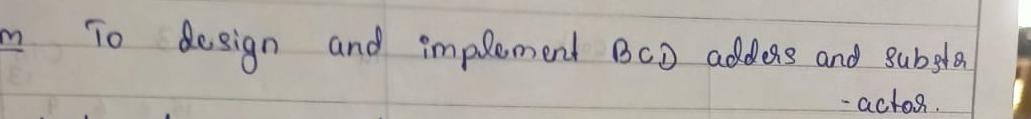 m To design and implement BCD adders and substr
-actor.